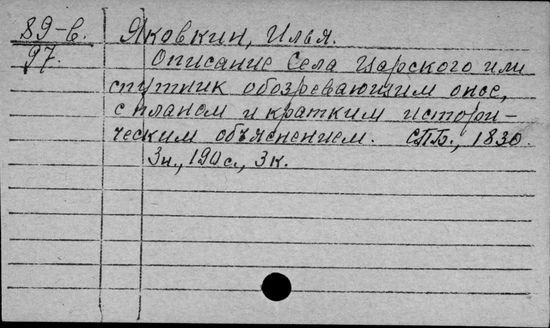 89-в. Яковкин, Илья.
97. Описание Села Царского или
спутник обозревающим оное,
с планом и кратким истори-
ческим объяснением. СПБ., 1830.
3н., 190с., 3к.